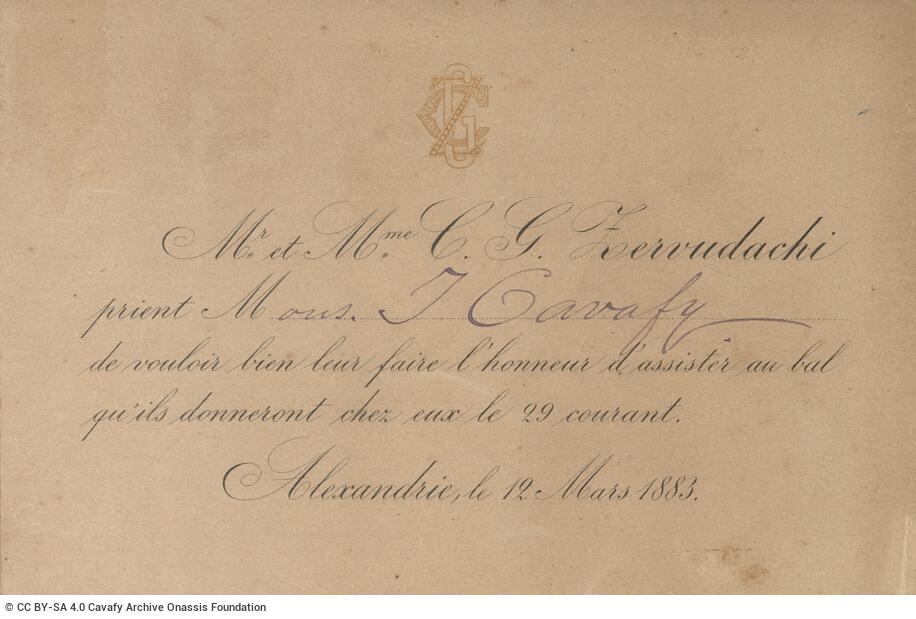 CGZ
Mr. et Mme. C. G. Zervudachi
prient Mons. J Cavafy
de vouloir bien leur faire l'honneur d'assister au bal
qu'ils donneront chez eux le 29 courant.
Alexandrie, le 12 Mars 1883.
© CC BY-SA 4.0 Cavafy Archive Onassis Foundation